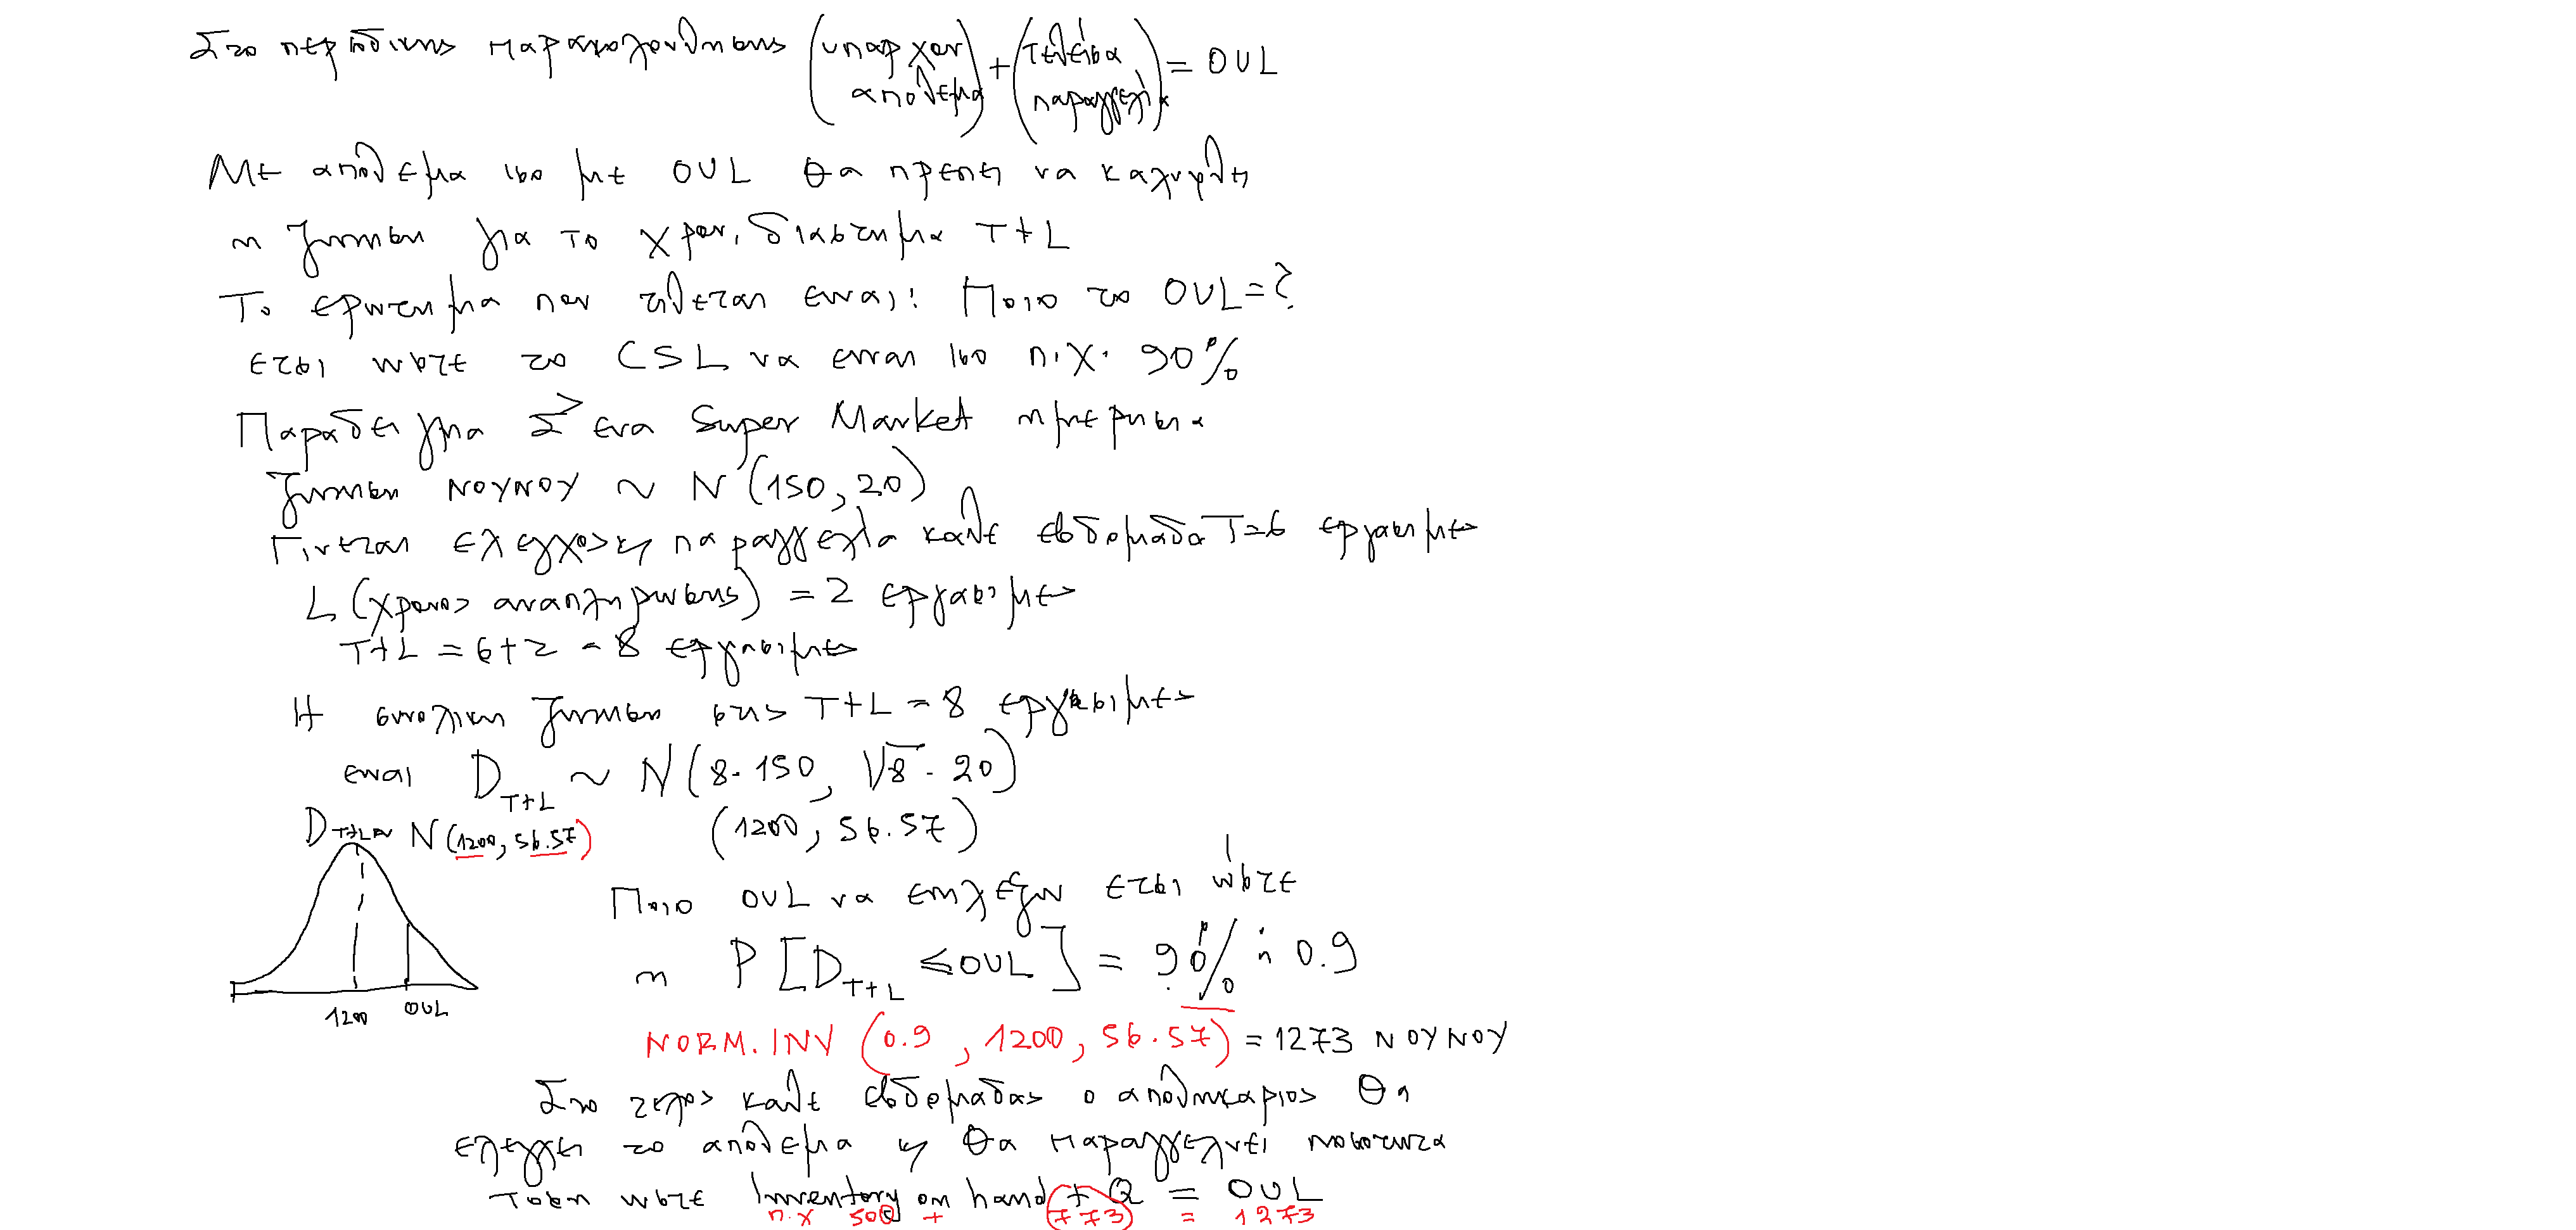 Στο περιοδικης παρακολουθησης (υπαρχον αποθεμα) + (τελεια παραγγελια) = OUL
Με αποθεμα ισο με OUL θα πρεπει να καλυφθει
η ζητηση για το χρον. διαστημα T+L
Το ερωτημα που τιθεται ειναι: Ποιο το OUL=?
ετσι ωστε το CSL να ειναι ισο π.χ. 90%
Παραδειγμα Σ' ενα Super Market ημερησια
ζητηση ΝΟΥΝΟΥ ~ N(150, 20)
Γινεται ελεγχος κ παραγγελια καθε εβδομαδα T=6 εργασιμες
L (χρονος αναπληρωσης) = 2 εργασιμες
T+L = 6+2 = 8 εργασιμες
Η συνολικη ζητηση στις T+L = 8 εργασιμες
ειναι D_{T+L} ~ N(8·150, √8·20)
(1200, 56.57)
D_{T+L} ~ N(1200, 56.57)
1200 OUL
Ποιο OUL να επιλεξω ετσι ώστε
η P[D_{T+L} ≤ OUL] = 90% ή 0.9
NORM.INV (0.9, 1200, 56.57) = 1273 ΝΟΥΝΟΥ
Στο τελος καθε εβδομαδας ο αποθηκαριος θα
ελεγχει το αποθεμα κ θα παραγγελνει ποσοτητα
τοση ωστε Inventory on hand + Q = OUL
π.χ 500 + 773 = 1273